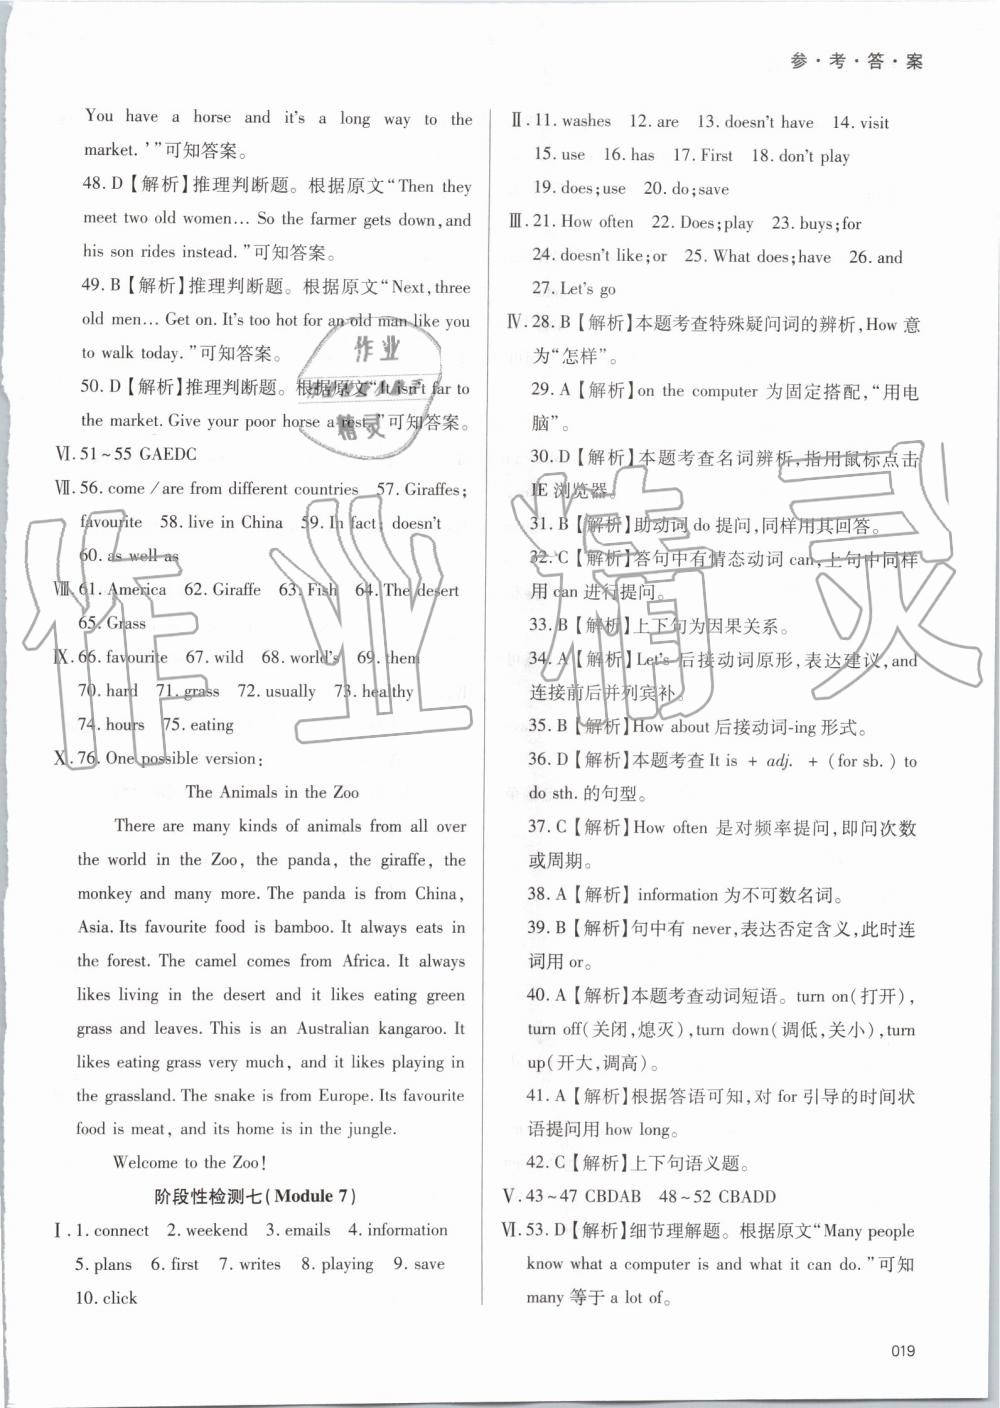 参·考·答·案
You have a horse and it's a long way to the
market.'”可知答案。
48. D【解析】推理判断题。根据原文“Then they
meet two old women… So the farmer gets down,and
his son rides instead.”可知答案。
49. B【解析】推理判断题。根据原文“Next,three
old men… Get on. It's too hot for an old man like you
to walk today.”可知答案。
50. D【解析】推理判断题。根据原文“It isn't far to
the market. Give your poor horse a rest.”可知答案。
Ⅵ. 51~55 GAEDC
Ⅶ. 56. come /are from different countries 57. Giraffes;
favourite 58. live in China 59. In fact; doesn't
60. as well as
Ⅷ. 61. America 62. Giraffe 63. Fish 64. The desert
65. Grass
Ⅸ. 66. favourite 67. wild 68. world's 69. them
70. hard 71. grass 72. usually 73. healthy
74. hours 75. eating
Ⅹ. 76. One possible version:
The Animals in the Zoo
There are many kinds of animals from all over
the world in the Zoo, the panda, the giraffe, the
monkey and many more. The panda is from China,
Asia. Its favourite food is bamboo. It always eats in
the forest. The camel comes from Africa. It always
likes living in the desert and it likes eating green
grass and leaves. This is an Australian kangaroo. It
likes eating grass very much, and it likes playing in
the grassland. The snake is from Europe. Its favourite
food is meat, and its home is in the jungle.
Welcome to the Zoo!
阶段性检测七(Module 7)
Ⅰ. 1. connect 2. weekend 3. emails 4. information
5. plans 6. first 7. writes 8. playing 9. save
10. click
Ⅱ. 11. washes 12. are 13. doesn't have 14. visit
15. use 16. has 17. First 18. don't play
19. does;use 20. do;save
Ⅲ. 21. How often 22. Does;play 23. buys;for
24. doesn't like;or 25. What does;have 26. and
27. Let's go
Ⅳ. 28. B【解析】本题考查特殊疑问词的辨析,How 意
为“怎样”。
29. A【解析】on the computer 为固定搭配,“用电
脑”。
30. D【解析】本题考查名词辨析,指用鼠标点击
IE 浏览器。
31. B【解析】助动词 do 提问,同样用其回答。
32. C【解析】答句中有情态动词 can,上句中同样
用 can 进行提问。
33. B【解析】上下句为因果关系。
34. A【解析】Let's 后接动词原形,表达建议,and
连接前后并列宾补。
35. B【解析】How about 后接动词-ing 形式。
36. D【解析】本题考查 It is + adj. + (for sb.) to
do sth. 的句型。
37. C【解析】How often 是对频率提问,即问次数
或周期。
38. A【解析】information 为不可数名词。
39. B【解析】句中有 never,表达否定含义,此时连
词用 or。
40. A【解析】本题考查动词短语。turn on(打开),
turn off(关闭,熄灭),turn down(调低,关小),turn
up(开大,调高)。
41. A【解析】根据答语可知,对 for 引导的时间状
语提问用 how long。
42. C【解析】上下句语义题。
Ⅴ. 43~47 CBDAB 48~52 CBADD
Ⅵ. 53. D【解析】细节理解题。根据原文“Many people
know what a computer is and what it can do.”可知
many 等于 a lot of。
019
作业
精灵
作业精灵